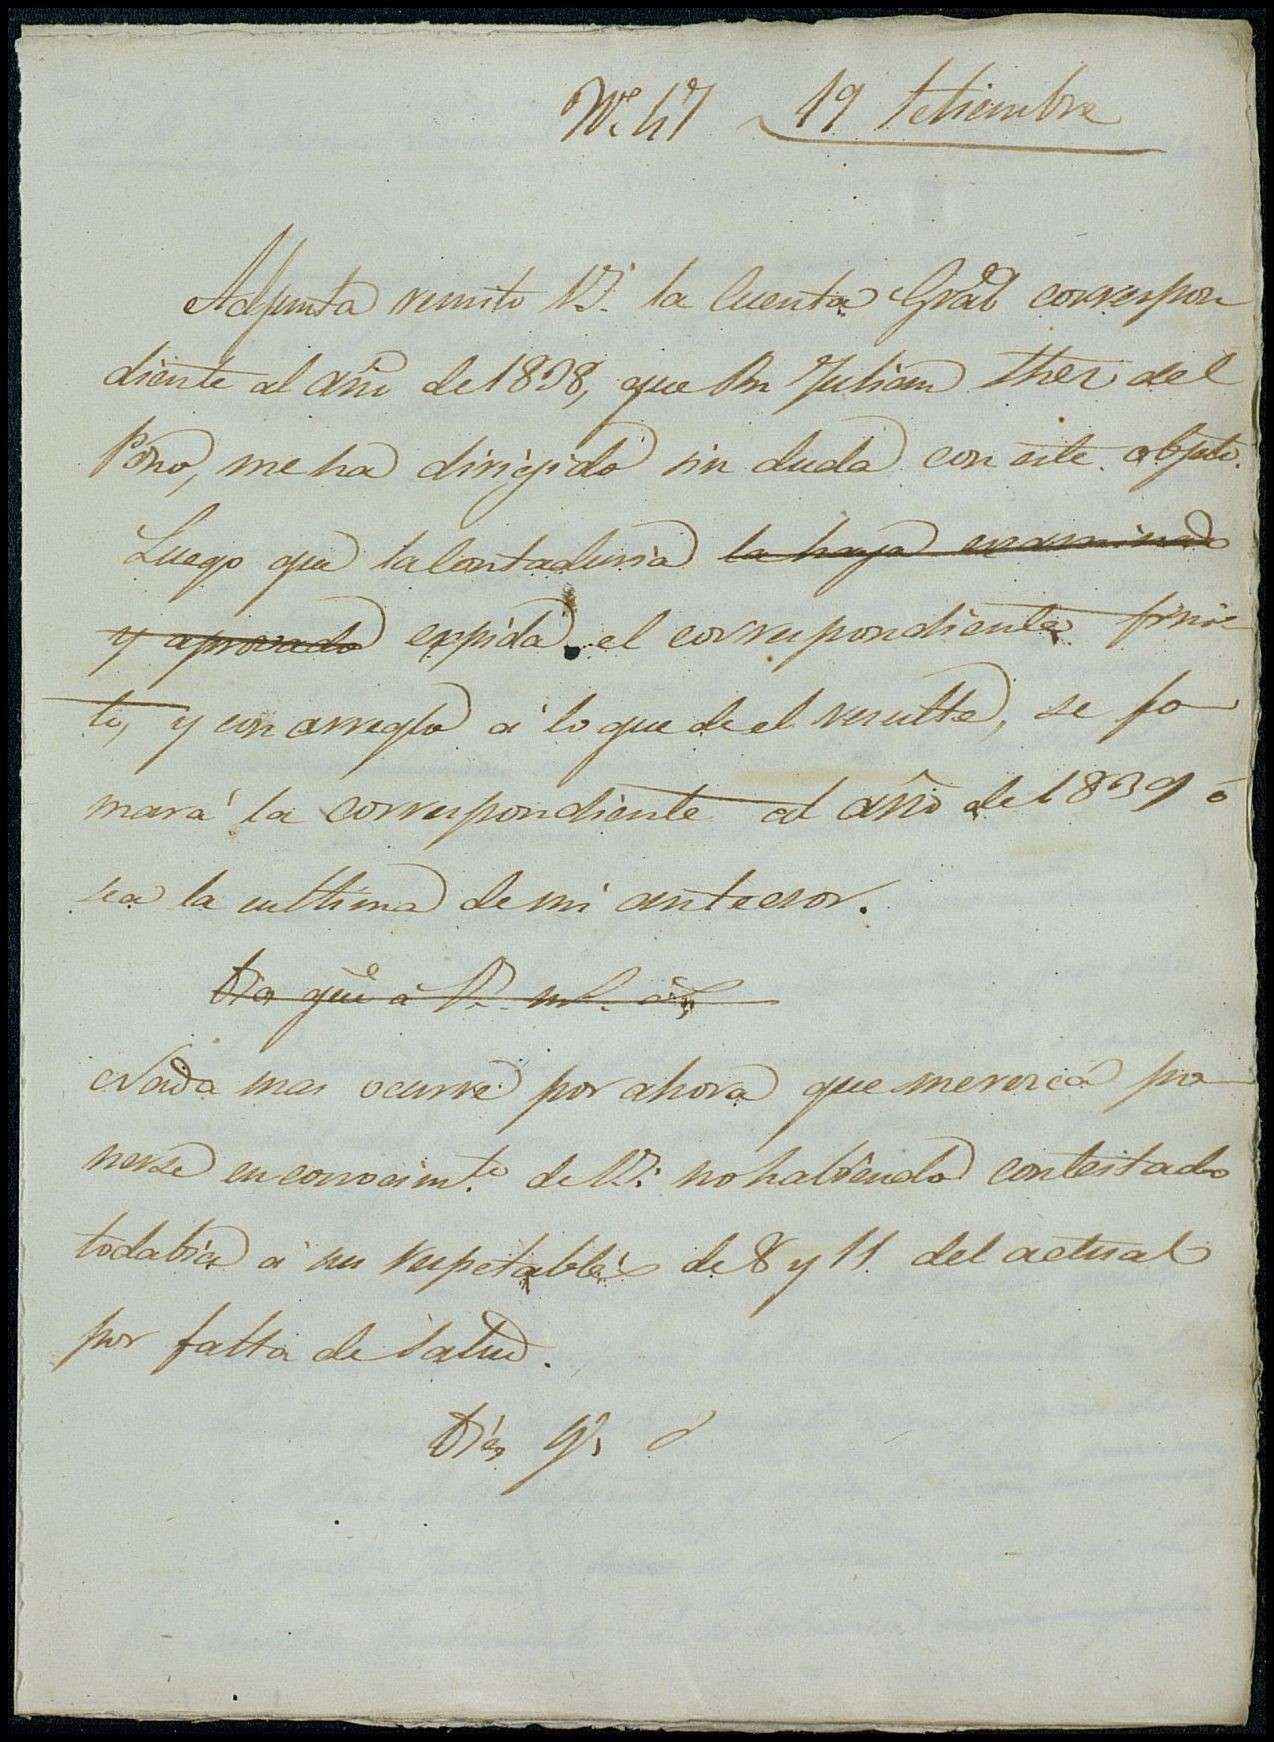 19 Setiembre
Adjunta remito V. la Cuenta Gral correspon
diente al año de 1838, que Dn Julian Ther del
Pozo, me ha dirigido sin duda con este objeto.
Luego que la Contaduria la haya examinado
y aprovado expida el correspondiente finiqui
to, y con arreglo á lo que de el resulta, se fo
mará la correspondiente al año de 1839 ó
sea la ultima de mi antecesor.
Dios que á V. ms. as
Nada mas ocurre por ahora que merezca po
nerse en conocimto. de V. no habiendo contestado
todabia á sus respetables de 8 y 11 del actual
por falta de salud.
Dios